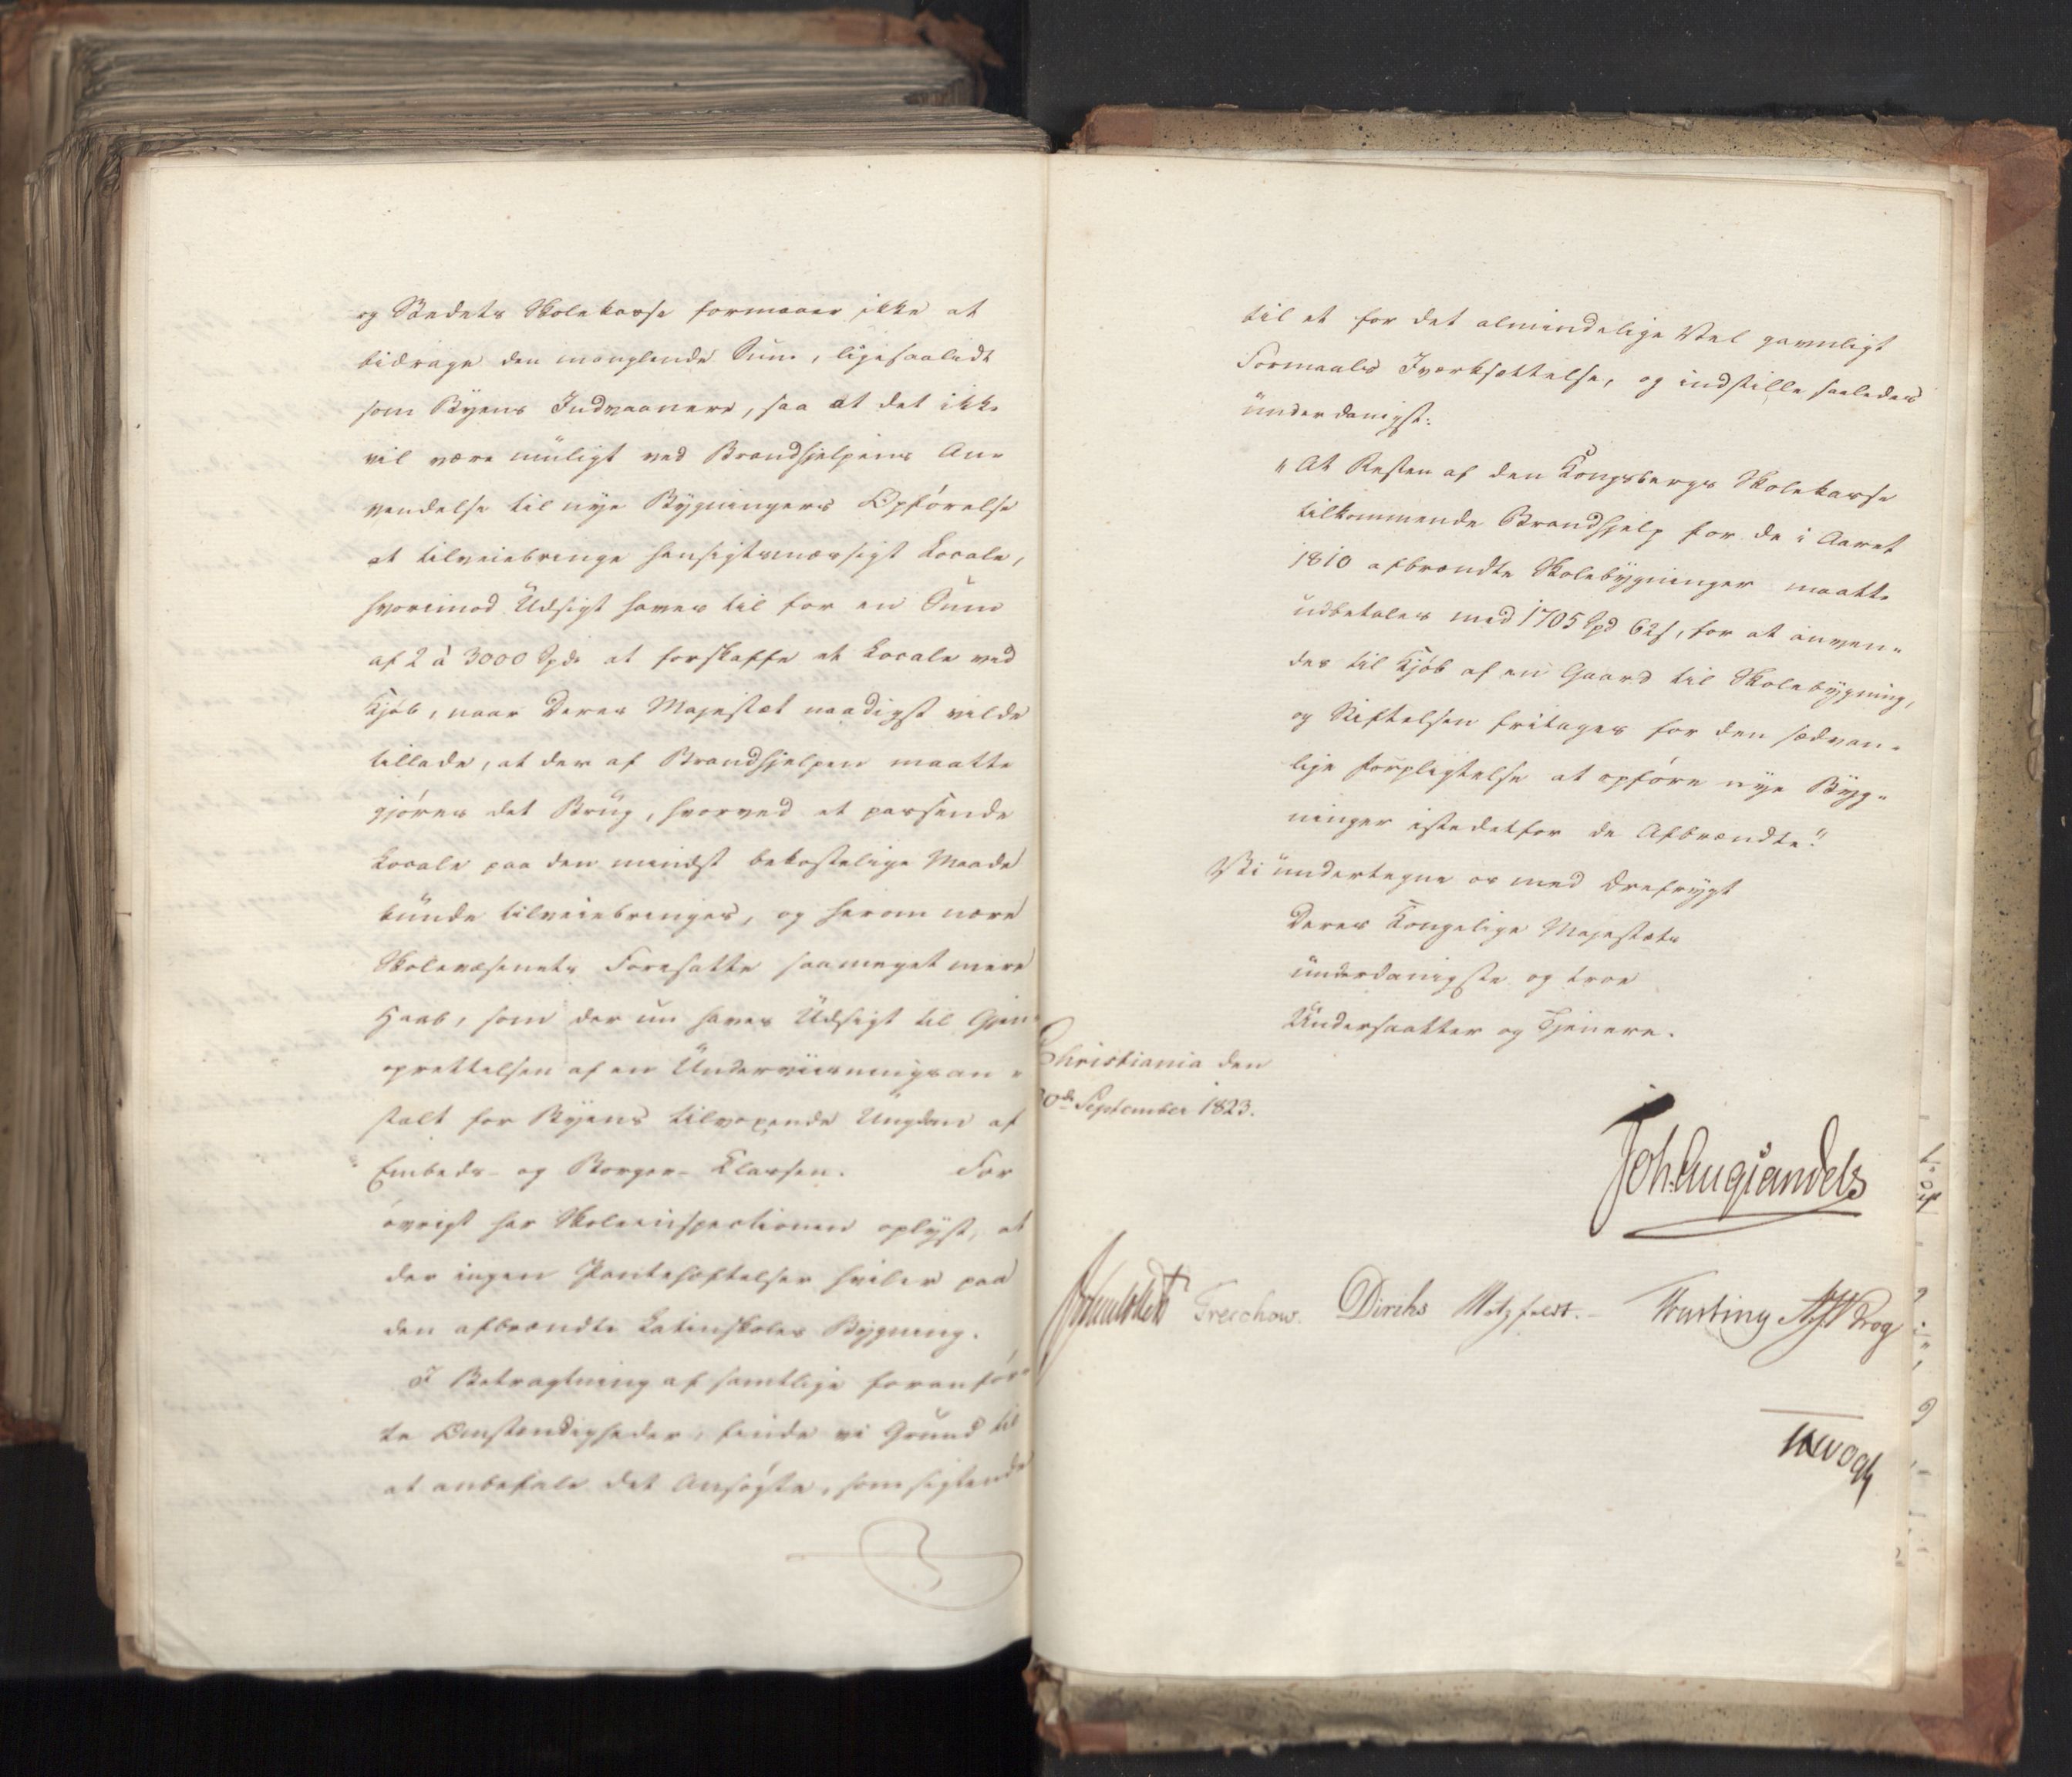 og Stedets Skolekasse formaaer ikke at
bidrage den manglende Sum, ligesaalidt
som Byens Indvaanere, saa at det ikke
vil være muligt ved Brandhjelpens An-
vendelse til nye Bygningers Opførelse
at tilveiebringe hensigtsmæssigt Locale,
hvorimod Udsigt haves til for en Sum
af 2 à 3000 Spd. at forskaffe et Locale ved
Kjøb, naar Deres Majestæt naadigst vilde
tillade, at der af Brandhjelpen maatte
gjøres det Brug, hvorved et passende
Locale paa den mindst bekostelige Maade
kunde tilveiebringes, og herom nære
Skolevæsenets Foresatte saameget mere
Haab, som der nu haves Udsigt til Gjen-
oprettelsen af en Underviisningsan-
stalt for Byens tilvoxende Ungdom af
Embeds- og Borger-Classen. For
øvrigt har Skoleinspectionen oplyst, at
der ingen Pantehæftelser hviler paa
den afbrændte Latinskoles Bygning.
I Betragtning af samtlige foranfør-
te Omstændigheder, finde vi Grund til
at anbefale det Ansøgte, som sigtende
til et for det almindelige Vel gavnligt
Formaals Iværksættelse, og indstille saaledes
underdanigst:
"At Resten af den Kongsbergs Skolekasse
tilkommende Brandhjelp for de i Aaret
1810 afbrændte Skolebygninger maatte
udbetales med 1705 Spd 62 s, for at anven-
des til Kjøb af en Gaard til Skolebygning,
og Stiftelsen fritages for den sædvan-
lige Forpligtelse at opføre nye Byg-
ninger istedetfor de Afbrændte."
Vi undertegne os med Ærefrygt
Deres Kongelige Majestæts
underdanigste og troe
Undersaatter og Tjenere.
Christiania den
0de September 1823.
Joh. Aug Sandels
Treschow. Diriks Motzfeldt.